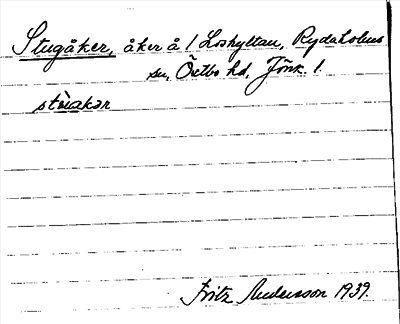 Stugåker, åker å 1 Loshyltan, Rydaholms
sn, Östbo hd, Jönk. l.
stu̇akər
Fritz Andersson 1939.